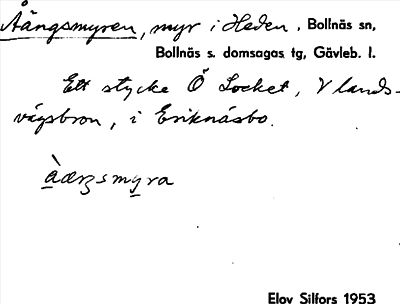 Åängsmyren, myr i Heden, Bollnäs sn,
Bollnäs s. domsagas tg, Gävleb. l.
Ett stycke Ö Locket, V lands-
vägsbron, i Eriknäsbo.
àæŋsmyra
Elov Silfors 1953